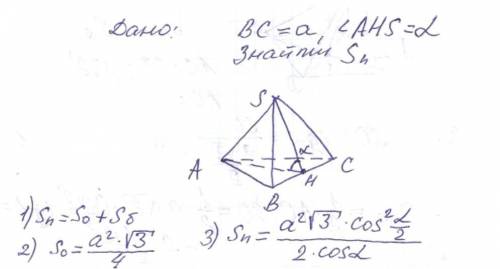 Дано: BC = a, ∠AHS = α
Знайти Sп
S
A
α
C
H
B
1) Sп = So + Sб
2) So = a²·√3 / 4
3) Sп = a²√3 · cos² α/2 / 2·cosα